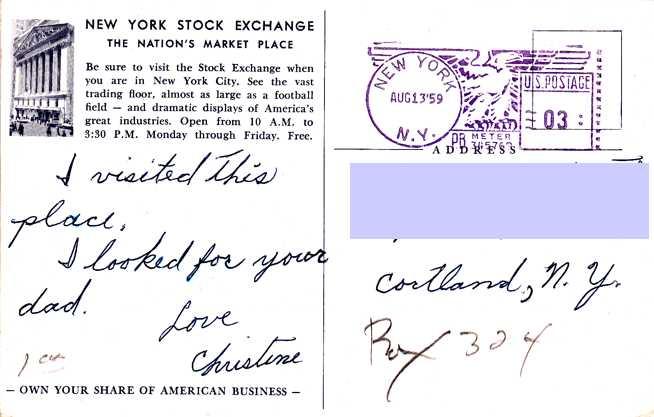 NEW YORK STOCK EXCHANGE
THE NATION'S MARKET PLACE
Be sure to visit the Stock Exchange when
you are in New York City. See the vast
trading floor, almost as large as a football
field — and dramatic displays of America's
great industries. Open from 10 A.M. to
3:30 P.M. Monday through Friday. Free.
I visited this
place.
I looked for your
dad.
Love
Christine
— OWN YOUR SHARE OF AMERICAN BUSINESS —
NEW YORK
AUG 13 '59
N.Y.
U.S. POSTAGE
03
PB METER
ADDRESS
Cortland, N. Y.
Box 324